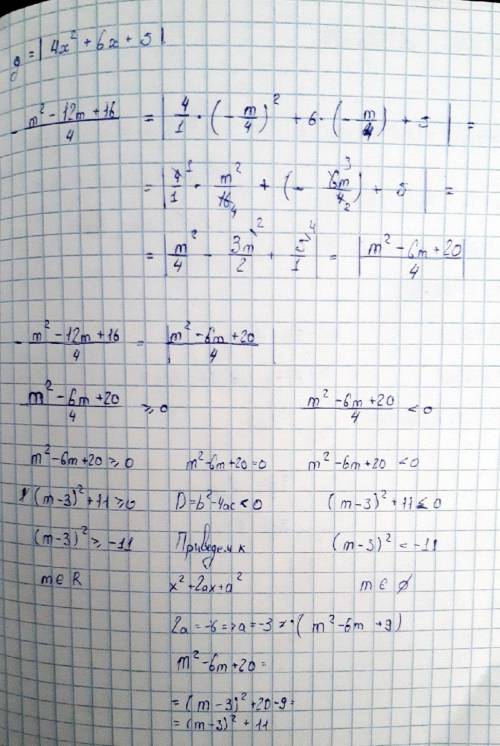 y = | 4x² + 6x + 5 |
- (m² - 12m + 16)/4 = | 4/1 · (- m/4)² + 6 · (- m/4) + 5 | =
= | 4¹/1 · m²/16₄ + (- 6m³/4₂) + 5 | =
= | m²/4 - 3m²/2 + 5⁴/1 = | (m² - 6m + 20)/4 |
- (m² - 12m + 16)/4 = | (m² - 6m + 20)/4 |
(m² - 6m + 20)/4 ≥ 0 (m² - 6m + 20)/4 < 0
m² - 6m + 20 ≥ 0 m² - 6m + 20 = 0 m² - 6m + 20 < 0
(m - 3)² + 11 ≥ 0 D = b² - 4ac < 0 (m - 3)² + 11 < 0
(m - 3)² ≥ -11 Приведем к (m - 3)² < -11
m ∈ R x² + 2ax + a² m ∈ ∅
2a = -6 => a = -3 (m² - 6m + 9)
m² - 6m + 20 =
= (m - 3)² + 20 - 9 =
= (m - 3)² + 11